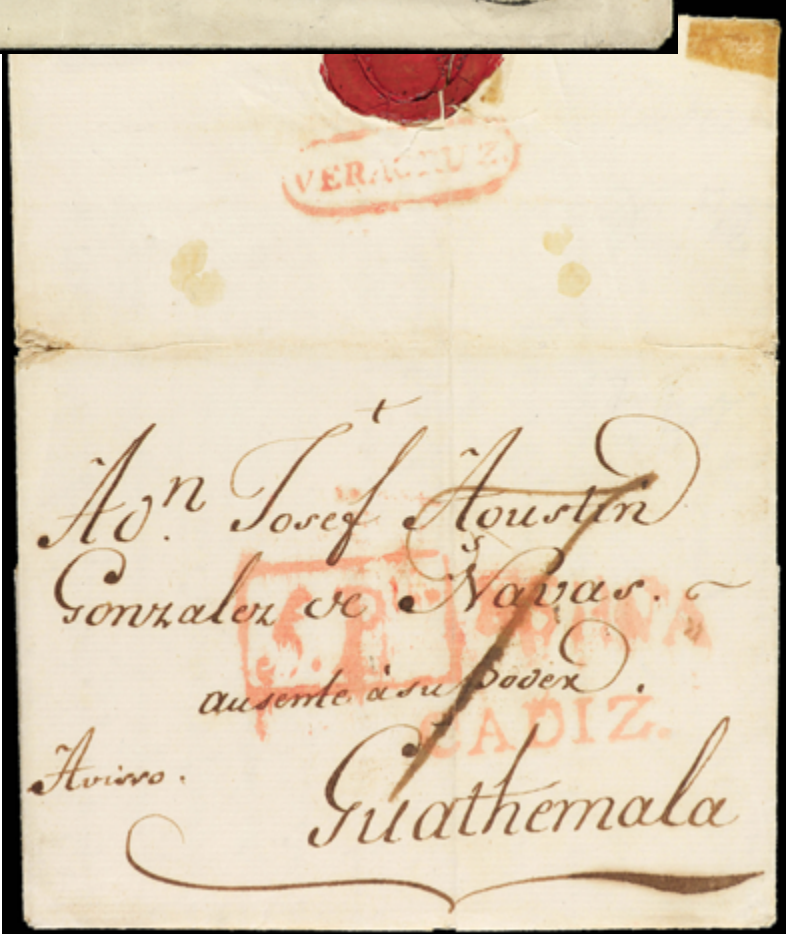 VERACRUZ.
t
A dn. Josef Agustin
Gonzalez de Navas.
ausente à su Poder.
CADIZ.
Avisso.
Guathemala